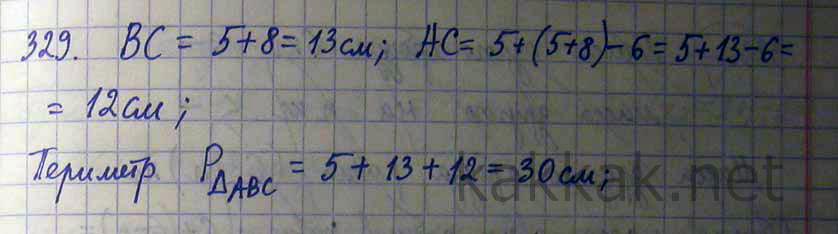 329. BC = 5+8 = 13см; AC = 5+(5+8)-6 = 5+13-6 =
= 12см;
Периметр P△ABC = 5 + 13 + 12 = 30см;
kakkak.net